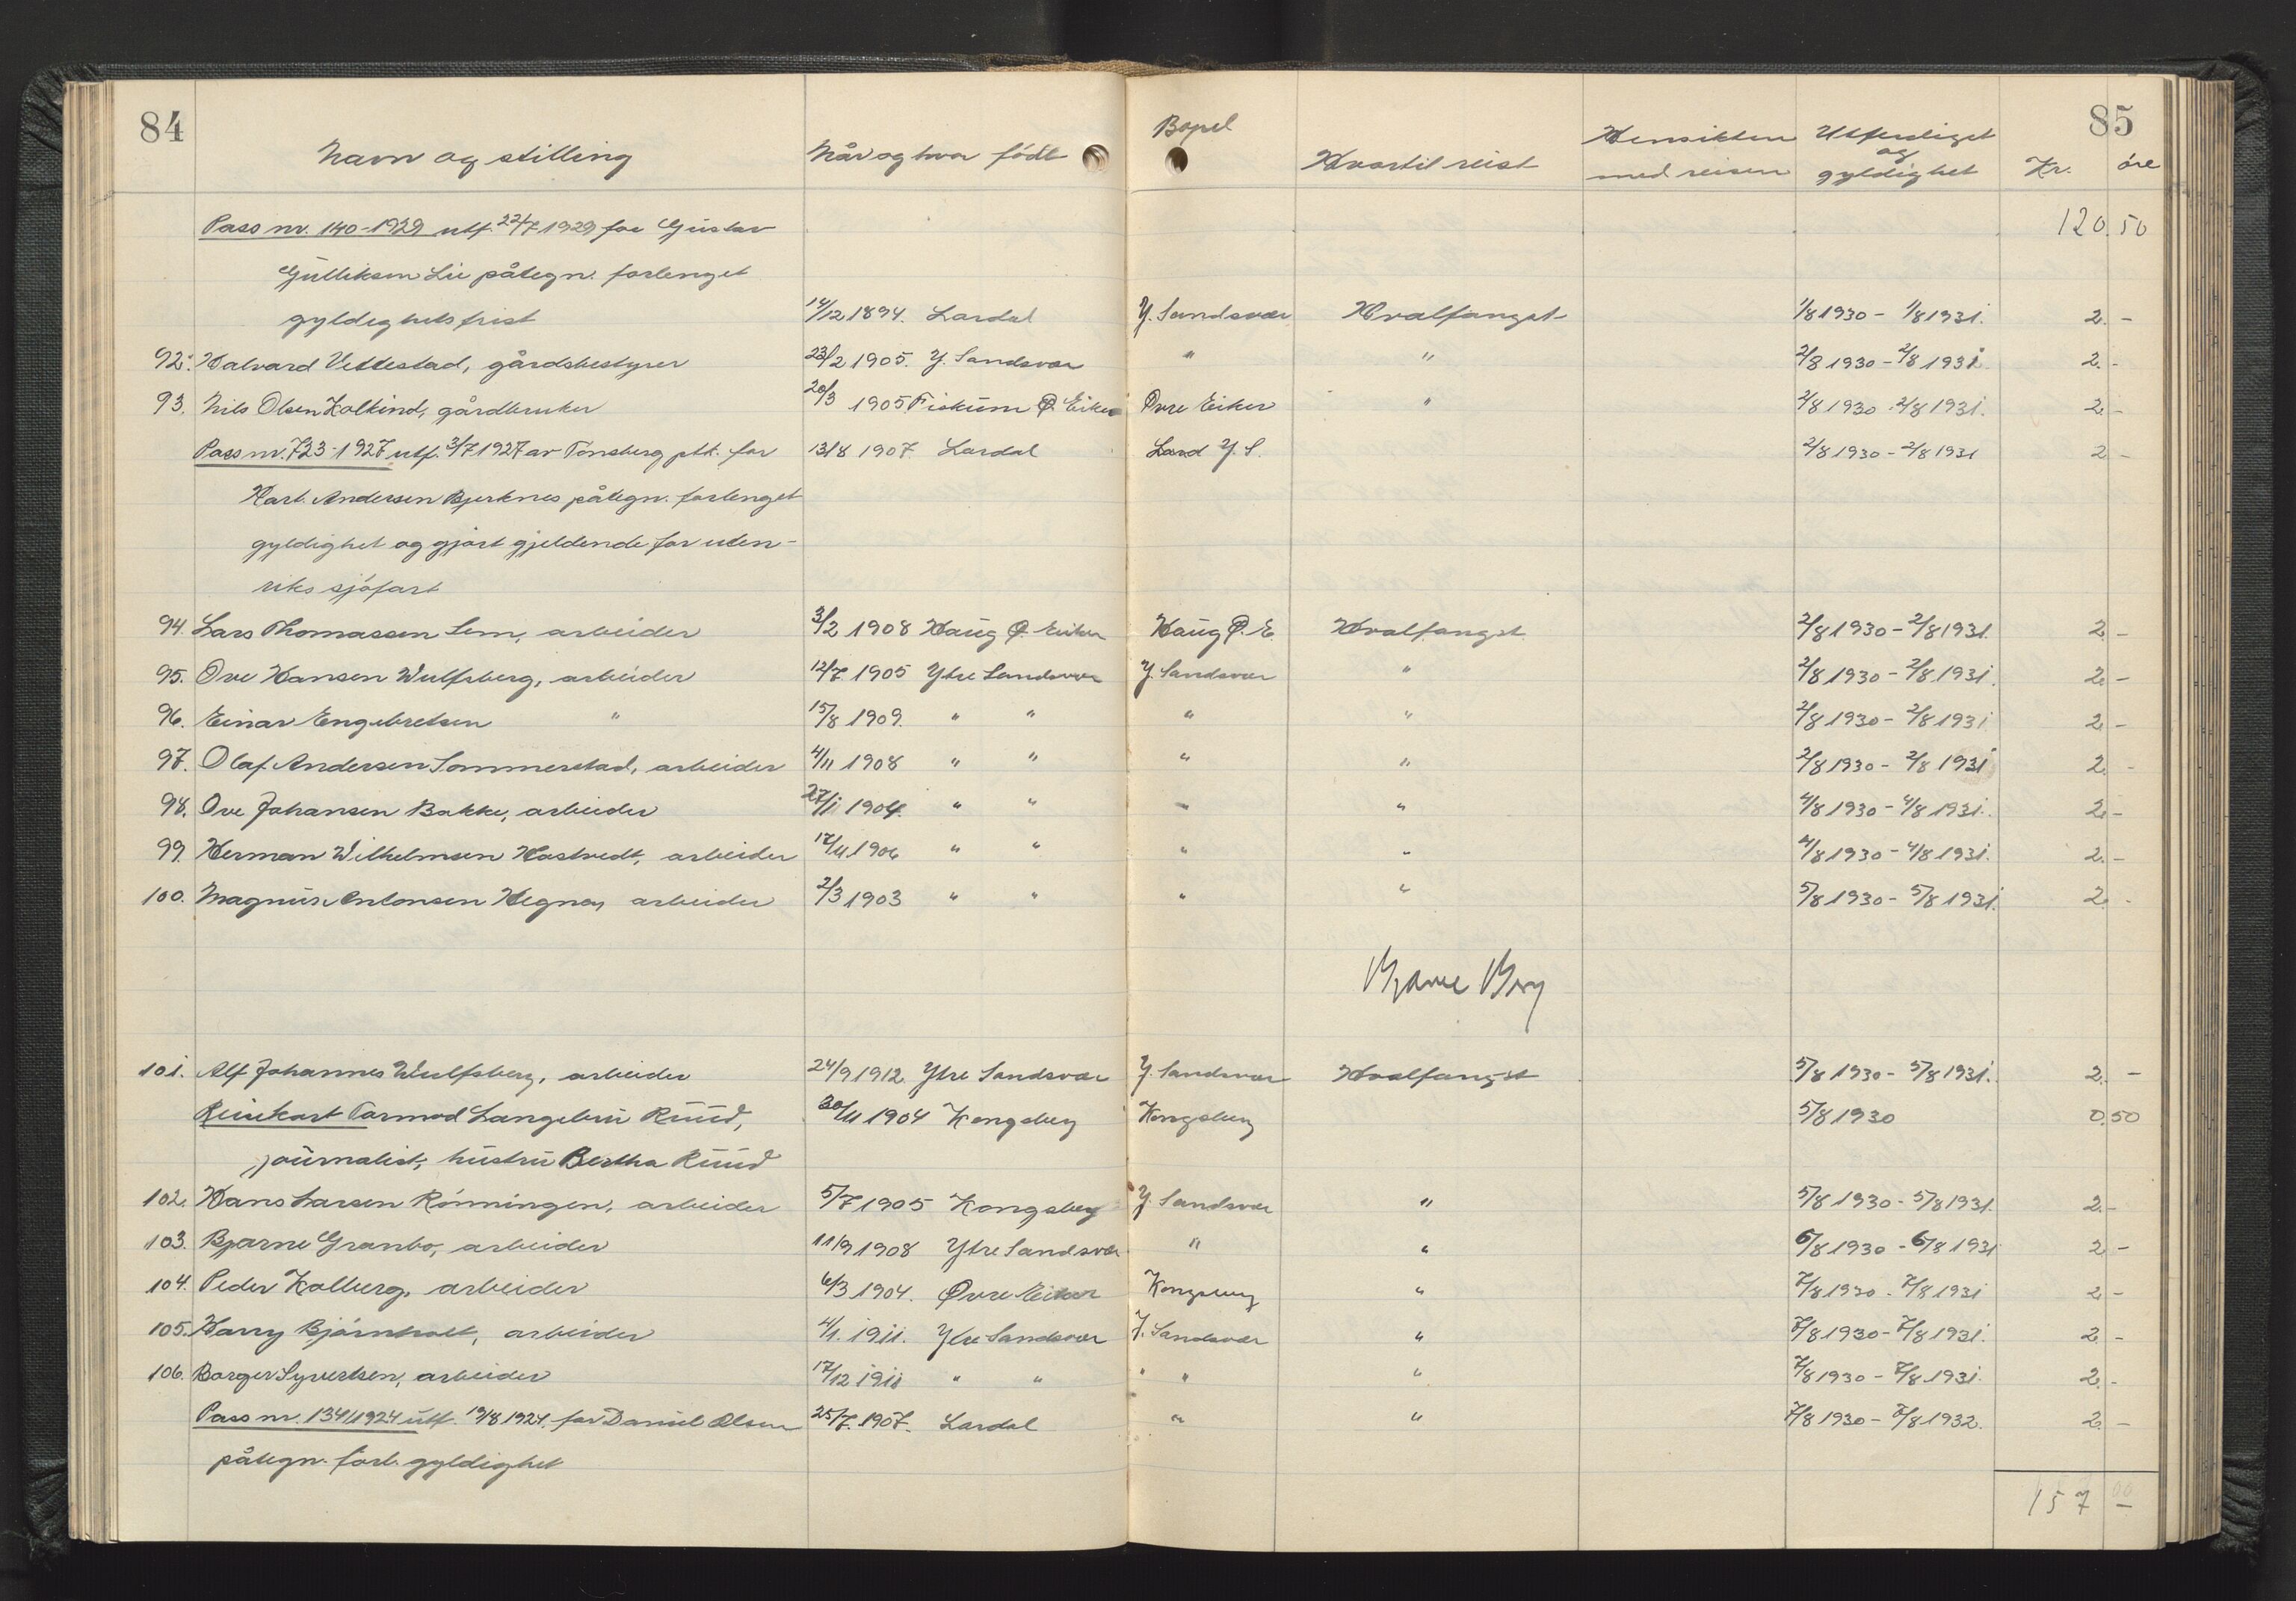 84
85
Navn og stilling Når og hvor født Bopel Hvortil reist Hensikten med reisen Utferdiget og gyldighet Kr. öre
Pass nr. 140-1929 utf. 22/7 1929 for Gustav 120.50
Gulliksen Lie påtegn. forlenget
gyldighetsfrist 14/12 1894. Lardal Y. Sandsvær Hvalfangst 1/8 1930 - 1/8 1931. 2. -
92. Halvard Vettestad, gårdsbestyrer 23/2 1905. Y. Sandsvær " " 2/8 1930 - 2/8 1931. 2. -
93. Nils Olsen Kolkind, gårdbruker 20/3 1905 Fiskum Ø. Eiker Övre Eiker " 2/8 1930 - 2/8 1931. 2. -
Pass nr. 723-1927 utf. 3/7 1927 av Tönsberg ptk. for 13/8 1907. Lardal Lard Y. S. 2/8 1930 - 2/8 1931 2 -
Hart. Andersen Bjerknes påtegn. forlenget
gyldighet og gjort gjeldende for uten-
riks sjöfart
94. Lars Thomassen Lem, arbeider 3/2 1908 Haug Ø. Eiker Haug Ø. E. Hvalfangst 2/8 1930 - 2/8 1931. 2. -
95. Ove Hansen Wulfsberg, arbeider 12/7 1905 Ytre Sandsvær Y. Sandsvær " 2/8 1930 - 2/8 1931. 2. -
96. Einar Engebretsen " 15/8 1909. " " " " 2/8 1930 - 2/8 1931 2. -
97. Olaf Andersen Sommerstad, arbeider 4/11 1908 " " " " 2/8 1930 - 2/8 1931 2. -
98. Ove Johansen Bakke, arbeider 27/1 1904. " " " " 4/8 1930 - 4/8 1931. 2. -
99. Herman Wilhelmsen Hostvedt, arbeider 17/11 1906 " " " " 4/8 1930 - 4/8 1931. 2. -
100. Magnus Antonsen Hegna, arbeider 2/3 1903 " " " " 5/8 1930 - 5/8 1931. 2. -
Bjarne Berg
101. Alf Johannes Wulfsberg, arbeider 24/9 1912. Ytre Sandsvær Y. Sandsvær Hvalfangst 5/8 1930 - 5/8 1931. 2. -
Reisekort Tormod Langebru Ruud, 30/11 1904 Kongsberg Kongsberg 5/8 1930 0.50
journalist, hustru Bertha Ruud
102. Hans Larsen Rönningen, arbeider 5/7 1905 Kongsberg Y. Sandsvær " 5/8 1930 - 5/8 1931. 2. -
103. Bjarne Granbo, arbeider 11/9 1908 Ytre Sandsvær " " 6/8 1930 - 6/8 1931 2 -
104. Peder Kolberg, arbeider 6/3 1904. Øvre Eiker Kongsberg " 7/8 1930 - 7/8 1931 2 -
105. Harry Björnholt, arbeider 4/1. 1911. Ytre Sandsvær Y. Sandsvær " 7/8 1930 - 7/8 1931. 2. -
106. Borger Syvertsen, arbeider 17/12 1911 " " " " " 7/8 1930 - 7/8 1931. 2. -
Pass nr. 134/1924 utf. 19/8 1924. for Daniel Olsen 25/7. 1907. Lardal " " 7/8 1930 - 7/8 1932. 2 -
påtegn. forl. gyldighet
157 -